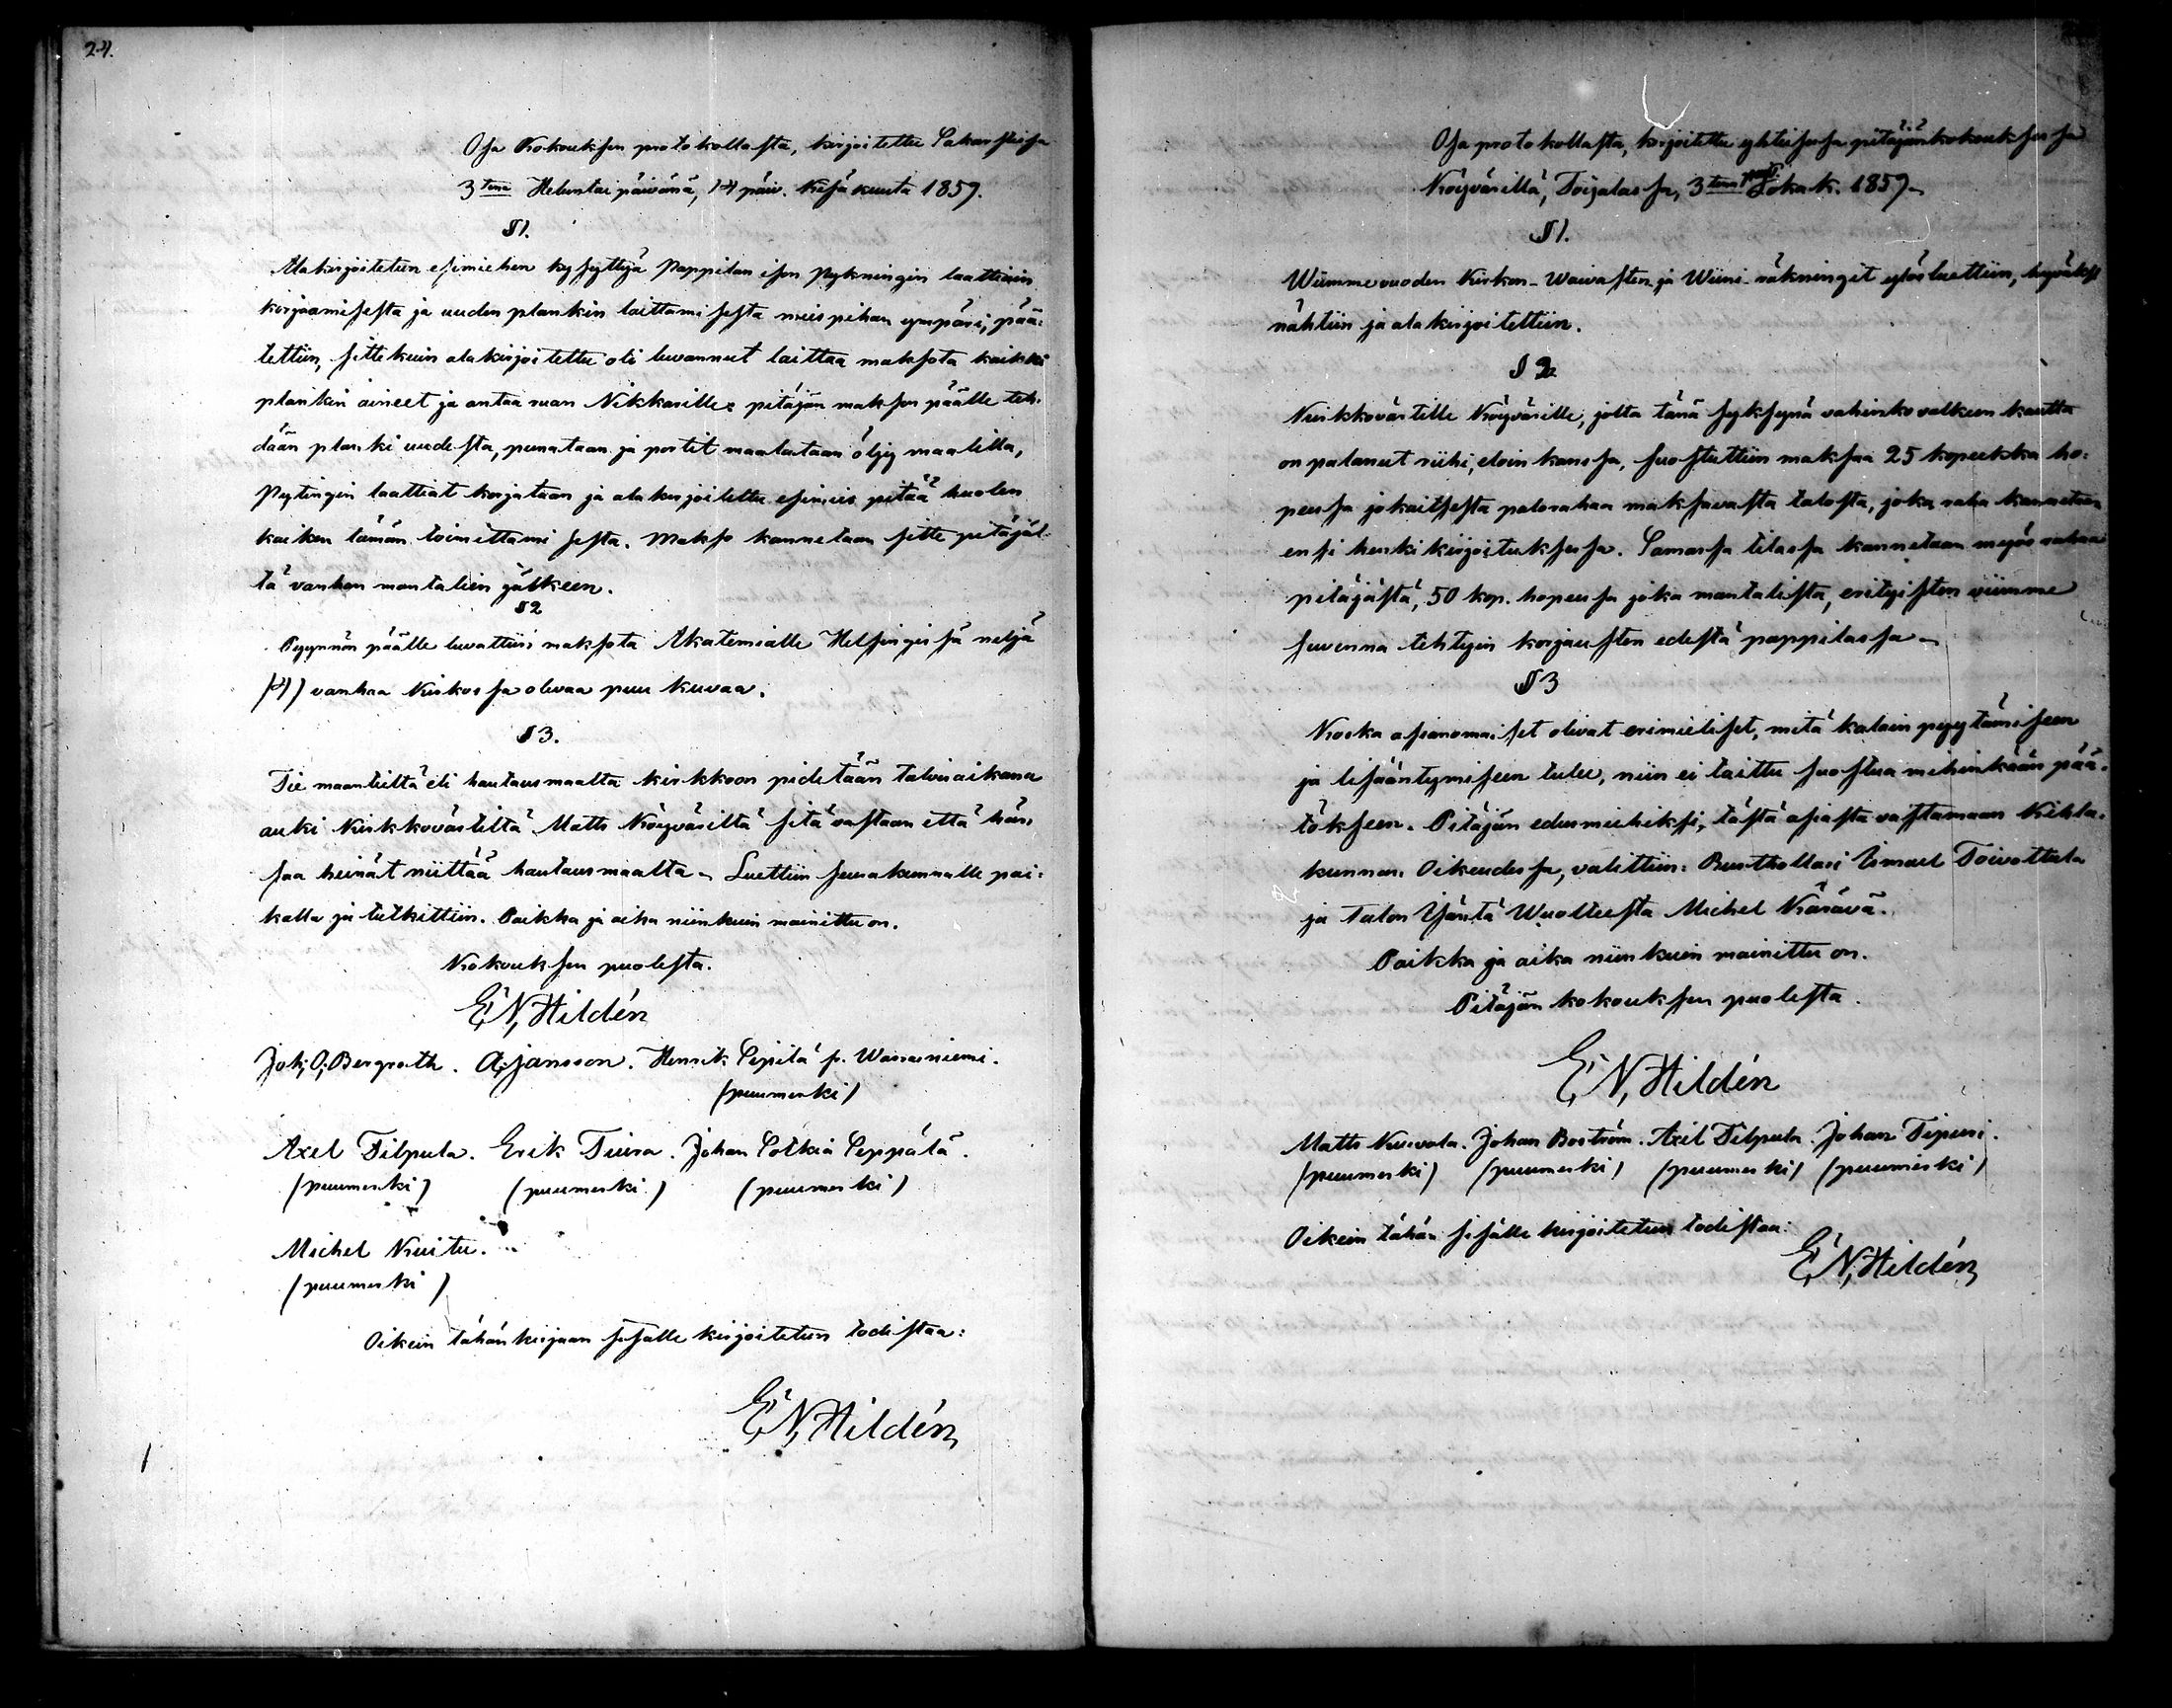 24.
Osa Kokouksen protokollasta, kirjoitettu Sakarstissa
3 tena Heluntai päivänä, 14 päiv. Kesäkuuta 1859.
§ 1.
Alakirjoitetun esimiehen kysyttyä Pappilan ison Pykningin laattiain
korjaamisesta ja uuden plankin laittamisesta miespihan ympäri, pää-
tettiin, sitte kuin alakirjoitettu oli luvannut laittaa maksota kaikki
plankin aineet ja antaa ruan Nikkarille: pitäjän makson päälle teh-
dään planki uudesta, punataan ja portit maalataan öljy maalilla,
Pytingin laattiat korjataan ja alakirjoitettu esimies pitää huolen
kaiken tämän toimittamisesta. Makso kannetaan sitte pitäjäl-
tä vanhan mantalien jälkeen.
§ 2
Pyynnön päälle luvattiin maksota Akatemialle Helsingissä neljä
(4) vanhaa Kirkossa olevaa puu kuvaa.
§ 3.
Tie maantieltä eli hautausmaalta kirkkoon pidetään talvisaikana
auki Kirkkovärtiltä Matts Köyväriltä sitä vastaan että hän
saa heinät niittää hautausmaalta. Luettiin seurakunnalle pai-
kalla ja tutkittiin. Paikka ja aika niinkuin mainittu on.
Kokouksen puolesta.
E. N. Hildén
Joh. O. Bergroth. A. Jansson. Henrik Sepilä p. Wasaniemi.
(puumerki)
Axel Tilpula. Erik Tiura. Johan Sotkia Seppälä.
(puumerki) (puumerki) (puumerki)
Michel Kuitu.
(puumerki)
Oikein tähän kirjaan sisälle kirjoitetun todistaa:
E. N. Hildén
Osa protokollasta, kirjoitettu yhteisessä pitäjänkokouksessa
Köyvärillä, Toijalassa, 3 tena päiv. Lokak. 1859.
§ 1.
Wiimmevuoden Kirkon- Waivasten ja Wiini-räkningit ylösluettiin, hyväksi
nähtiin ja alakirjoitettiin.
§ 2
Kirkkovärtille Köyvärille, jolta tänä syksynä vahinkovalkean kautta
on palanut riihi, eloin kanssa, suostuttiin maksaa 25 kopeekka ho-
peessa jokaitsesta palorahaa maksavasta talosta, joka raha kannetaan
ensi henkikirjoituksessa. Samassa tilassa kannetaan myös rahaa
pitäjästä, 50 kop. hopeessa joka mantalista, erityisten viimme
suvenna tehtyin korjausten edestä pappilassa.
§ 3
Koska asianomaiset olivat erimieliset, mitä kalain pyytämiseen
ja lisääntymiseen tulee, niin ei taittu suostua mihinkään pää-
tökseen. Pitäjän edusmiehiksi, tästä asiasta vastamaan Kihla-
kunnan Oikeudessa, valittiin: Rusthollari Ismael Toivottula
ja Talon Isäntä Wuolteesta Michel Kärävä.
Paikka ja aika niinkuin mainittu on.
Pitäjän kokouksen puolesta.
E. N. Hildén
Matts Kuivola. Johan Boström. Axel Tilpula. Johan Tipuri.
(puumerki) (puumerki) (puumerki) (puumerki)
Oikein tähän sisälle kirjoitetun todistaa:
E. N. Hildén